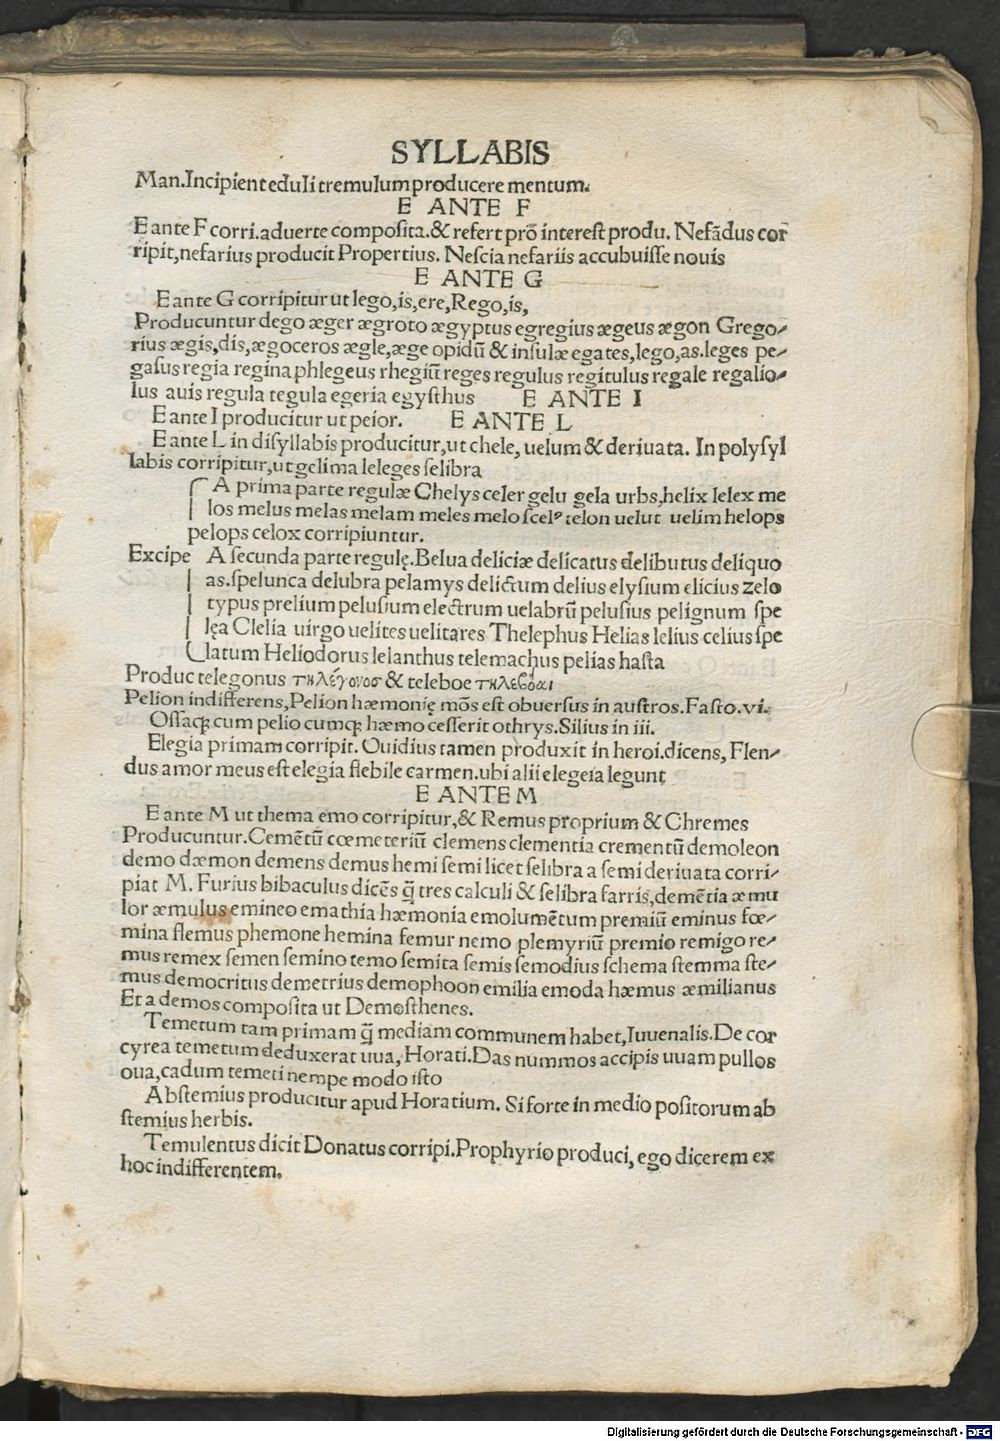 SYLLABIS
Man.Incipient eduli tremulum producere mentum.
E ANTE F
E ante F corri.aduerte composita.& refert prõ interest produ. Nefãdus cor
ripit,nefarius producit Propertius. Nescia nefariis accubuisse nouis
E ANTE G
E ante G corripitur ut lego,is,ere,Rego,is,
Producuntur dego æger ægroto ægyptus egregius ægeus ægon Grego-
rius ægis,dis,ægoceros ægle,æge opidũ & insulæ egates,lego,as.leges pe-
gasus regia regina phlegeus rhegiũ reges regulus regitulus regale regalio-
lus auis regula tegula egeria egysthus E ANTE I
E ante I producitur ut peior. E ANTE L
E ante L in disyllabis producitur,ut chele, uelum & deriuata. In polysyl
labis corripitur,ut gelima leleges selibra
A prima parte regulæ Chelys celer gelu gela urbs,helix lelex me
los melus melas melam meles melo scelꝰ telon uelut uelim helops
pelops celox corripiuntur.
Excipe A secunda parte regulę.Belua deliciæ delicatus delibutus deliquo
as.spelunca delubra pelamys delictum delius elysium elicius zelo
typus prelium pelusium electrum uelabrũ pelusius pelignum spe
lęa Clelia uirgo uelites uelitares Thelephus Helias lelius celius spe
latum Heliodorus lelanthus telemachus pelias hasta
Produc telegonus τηλέγονοσ & teleboe τηλεβόαι
Pelion indifferens,Pelion hæmonię mõs est obuersus in austros.Fasto.vi.
Ossaqꝫ cum pelio cumqꝫ hæmo cesserit othrys.Silius in iii.
Elegia primam corripit. Ouidius tamen produxit in heroi.dicens, Flen-
dus amor meus est elegia flebile carmen.ubi alii elegeia legunt
E ANTE M
E ante M ut thema emo corripitur,& Remus proprium & Chremes
Producuntur.Cemẽtũ cœmeteriũ clemens clementia crementũ demoleon
demo dæmon demens demus hemi semi licet selibra a semi deriuata corri-
piat M. Furius bibaculus dicẽs q̃ tres calculi & selibra farris,demẽtia æmu
lor æmulus emineo emathia hæmonia emolumẽtum premiũ eminus fœ-
mina flemus phemone hemina femur nemo plemyriũ premio remigo re-
mus remex semen semino temo semita semis semodius schema stemma ste-
mus democritus demetrius demophoon emilia emoda hæmus æmilianus
Et a demos composita ut Demosthenes.
Temetum tam primam q̃ mediam communem habet,Iuuenalis.De cor
cyrea temetum deduxerat uua, Horati.Das nummos accipis uuam pullos
oua,cadum temeti nempe modo isto
Abstemius producitur apud Horatium. Si forte in medio positorum ab
stemius herbis.
Temulentus dicit Donatus corripi.Prophyrio produci, ego dicerem ex
hoc indifferentem.
Digitalisierung gefördert durch die Deutsche Forschungsgemeinschaft - DFG